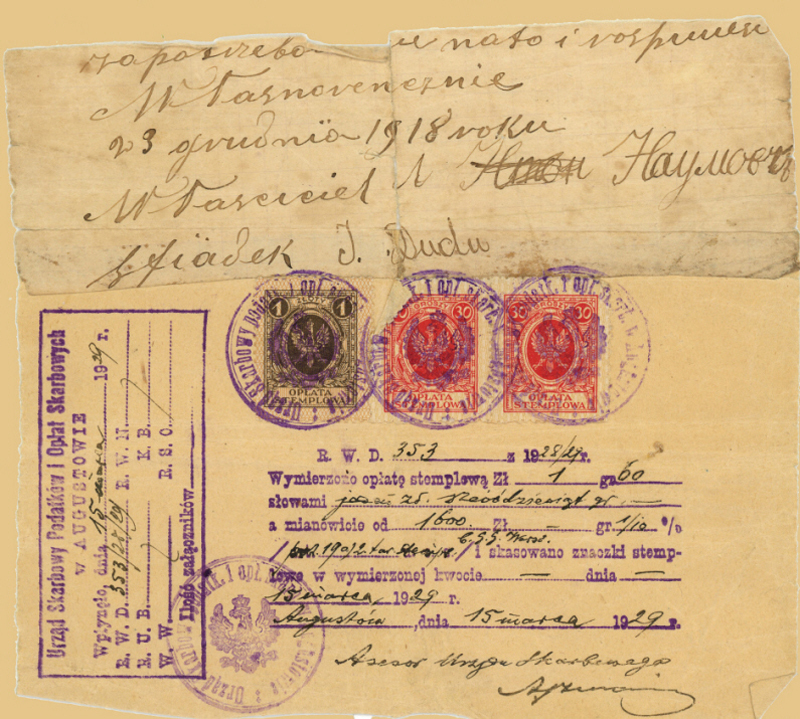 zapotrzebo nato i
Własnorencznie
23 grudnia 1918 roku
Własciciel
Sfiadek J. Dudu
1 ZŁOTY 1
OPŁATA
STEMPLOWA
30 GROSZY 30
OPŁATA
STEMPLOWA
30 GROSZY 30
OPŁATA
STEMPLOWA
Urząd Skarbowy Podatków i Opłat Skarbowych
w AUGUSTOWIE
Wpłynęło, dnia 15 marca 1929 r.
R. W. D. 353/28/29 R. W. N.
R. U. B. K. B.
W. W. R. S. O.
Ilość załączników
R. W. D. 353 z 1928/29 r.
Wymierzono opłatę stemplową Zł 1 gr 60
słowami zł. gr. —
a mianowicie od 1600 Zł — gr. 1/10 %
i skasowano znaczki stemp-
lowe w wymierzonej kwocie — dnia —
15 marca 1929 r.
Augustów, dnia 15 marca 1929 r.
Asesor Urzędu Skarbowego